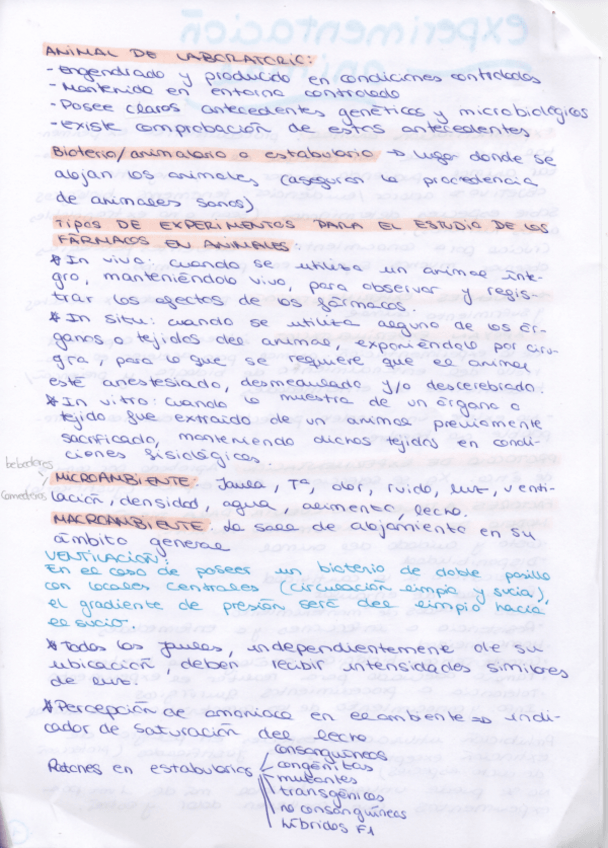 ANIMAL DE LABORATORIO:
- Engendrado y producido en condiciones controladas
- Mantenido en entorno controlado
- Posee claros antecedentes genéticos y microbiológicos
- Existe comprobación de estos antecedentes
Bioterio/animalario o estabulario → lugar donde se
alojan los animales (aseguran la procedencia
de animales sanos)
TIPOS DE EXPERIMENTOS PARA EL ESTUDIO DE LOS
FÁRMACOS EN ANIMALES:
* In vivo: cuando se utiliza un animal ínte-
gro, manteniéndolo vivo, para observar y regis-
trar los efectos de los fármacos.
* In situ: cuando se utiliza alguno de los ór-
ganos o tejidos del animal, exponiéndolo por ciru-
gía, para lo que se requiere que el animal
esté anestesiado, desmedulado y/o descerebrado.
* In vitro: cuando la muestra de un órgano o
tejido fue extraído de un animal previamente
sacrificado, manteniendo dichos tejidos en condi-
ciones fisiológicas.
bebederos
MICROAMBIENTE: Jaula, Tª, olor, ruido, luz, venti-
comederos
lación densidad, agua, alimento, lecho.
MACROAMBIENTE: La sala de alojamiento en su
ámbito general
VENTILACIÓN:
En el caso de poseer un bioterio de doble pasillo
con locales centrales (circulación limpia y sucia),
el gradiente de presión será del limpio hacia
el sucio.
* Todas las jaulas, independientemente de su
ubicación deben recibir intensidades similares
de luz.
* Percepción de amoniaco en el ambiente => indi-
cador de saturación del lecho
Ratones en estabularios
consanguíneos
congénitas
mutantes
transgénicos
no consanguíneos
híbridos F1